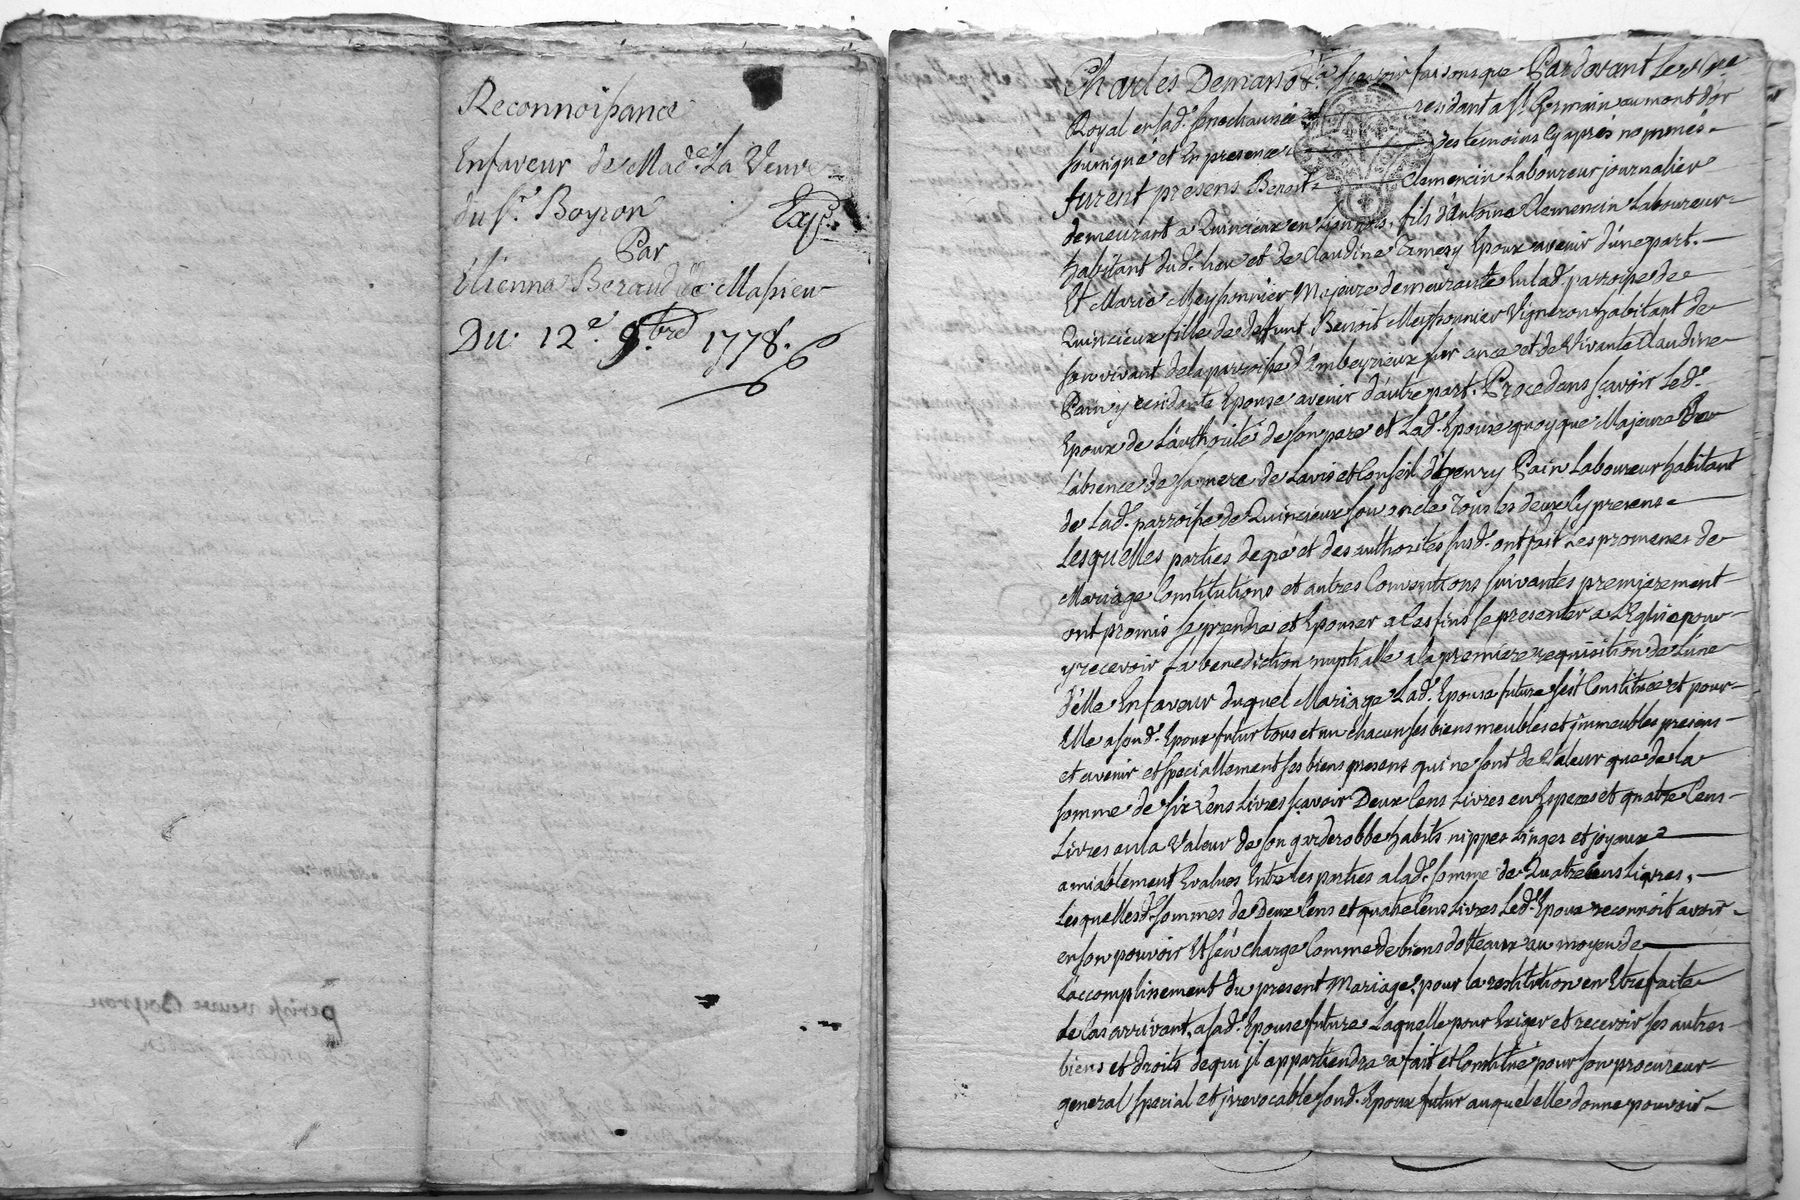 Reconnoissance
Enfaveur de Mad.e La Veuve
du s.r Boyron
Exp.
Par
Etienne Beraud de Massieu
Du. 12.e 9.bre 1778.
perisse veuve Boyron
Charles Demano sçavoir faisons que Pardavant Le
Royal en lad. senechaussée residant a St Germain au mont d'or
sousigné et En presence des temoins cy après nommés
furent presens Benoit Clemencin Laboureur journalier
demeurant a Quincieux en Lionnois, fils d'Antoine Clemencin Laboureur
habitant dud. lieu et de Claudine Epoux avenir d'une part.
Et Marie Meyssonnier Majeure demeurante En lad. parroisse de
Quincieux fille de deffunt Benoit Meyssonnier Vigneron habitant de
son vivant de la parroisse d'Ambeyrieux sur ance et de Vivante Claudine
Pain y residante Epouse avenir d'autre part. Procedans sçavoir Led.
Epoux de L'authorité de son pere et Lad. Epouse quoyque Majeure
L'absence de sa mere de L'avis et Conseil d'henry Pain Laboureur habitant
de Lad. parroisse de Quincieux son oncle Tous les deux Cy presens
Lesquelles parties de gré et des authorités susd. ont fait Les promesses de
Mariage Constitutions et autres Conventions suivantes premierement
ont promis se prendre et Epouser a Ces fins se presenter a L'Eglise pour
y recevoir La benediction nuptialle a la premiere requisition de L'une
d'elle Enfaveur duquel Mariage Lad. Epouse future s'est Constituée et pour
Elle a sond. Epoux futur tous et un chacun ses biens meubles et immeubles presens
et avenir et speciallement ses biens presens qui ne sont de Valeur que de la
somme de six Cens Livres sçavoir Deux Cens Livres en Especes et quatre Cens
Livres en la Valeur de son garderobbe habits nippes Linges et joyaux
amiablement Evalués Entre les parties a lad. somme de Quatre Cens Livres,
Lesquelles d. sommes de Deux Cens et quatre Cens Livres Led. Epoux reconnoit avoir
en son pouvoir Et s'en charge Comme de biens dotteaux au moyen de
L'accomplissement du present Mariage, pour la restitution en Etre faite
le Cas arrivant, a lad. Epouse future Laquelle pour Exiger et recevoir ses autres
biens et droits de qui il appartiendra a fait et Constitué pour son procureur
general special et irrevocable sond. Epoux futur auquel elle donne pouvoir